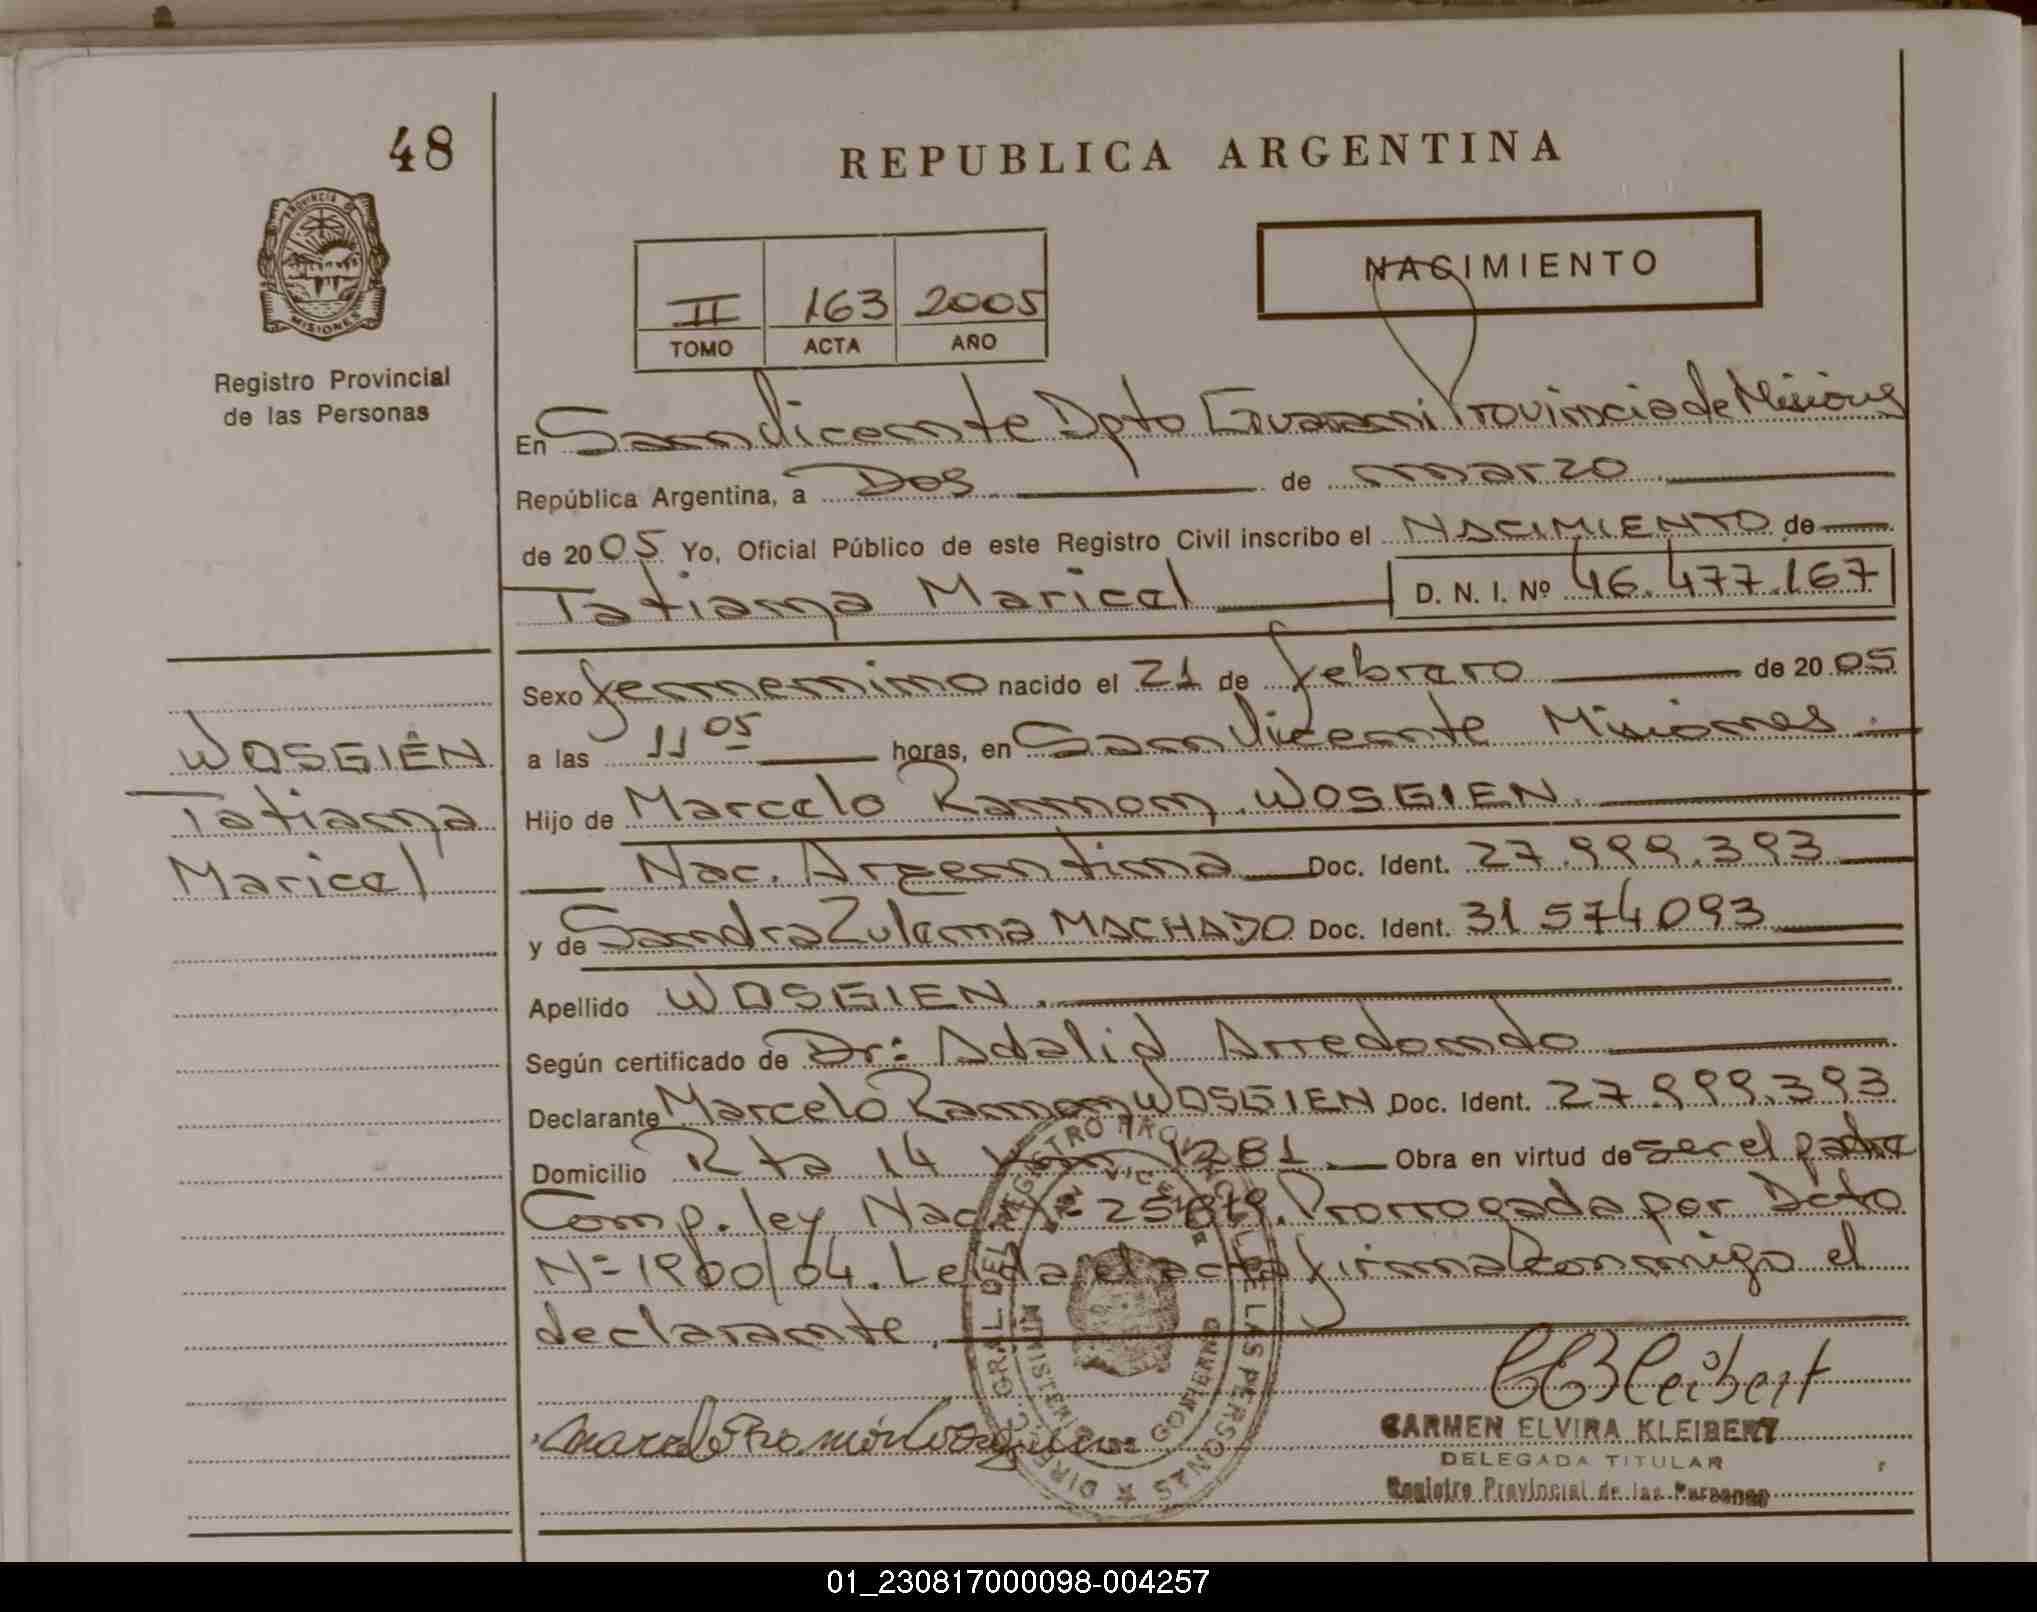 48
REPUBLICA ARGENTINA
PROVINCIA DE
MISIONES
Registro Provincial
de las Personas
II 163 2005
TOMO ACTA AÑO
NACIMIENTO
En San Vicente Dpto Guarani Provincia de Misiones
República Argentina, a Dos de marzo
de 2005 Yo, Oficial Público de este Registro Civil inscribo el NACIMIENTO de
Tatiana Maricel D. N. I. Nº 46.477.167
Sexo femenino nacido el 21 de febrero de 2005
a las 11 05 horas, en San Vicente Misiones.
WOSGIEN
Tatiana
Maricel
Hijo de Marcelo Ramon WOSGIEN.
Nac. Argentina Doc. Ident. 27.999.393
y de Sandra Zulema MACHADO Doc. Ident. 31 574 093
Apellido WOSGIEN.
Según certificado de Dr: Adalid Arredondo
Declarante Marcelo Ramon WOSGIEN Doc. Ident. 27.999.393
Domicilio Rta 14 Km 1281. Obra en virtud de ser el padre
Comp. ley Nac Nº 25819. Prorrogada por Dcto
Nº 1900/04. Leida el acta firma conmigo el
declarante.
CARMEN ELVIRA KLEIBERT
DELEGADA TITULAR
Registro Provincial de las Personas
01_230817000098-004257